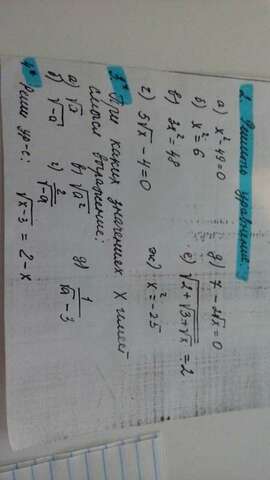 2. Решить уравнение:
а) x² - 49 = 0
б) x² = 6
в) 3x² = 48
г) 5√x - 4 = 0
д) 7 - 2√x = 0
е) √(2 + √(3 + √x)) = 2
ж) x² = -25
3* При каких значениях X имеет
смысл выражение:
а) √a
б) √-a
в) √a²
г) 2/√-a
д) 1/(√a - 3)
4* Реши ур-е:
√(x - 3) = 2 - x